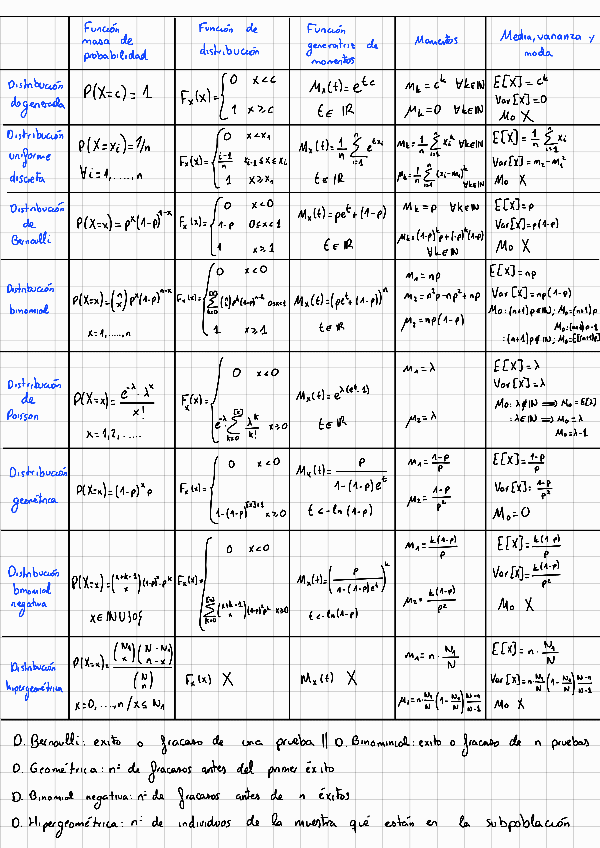 Función masa de probabilidad | Función de distribución | Función generatriz de momentos | Momentos | Media, varianza y moda
Distribución degenerada | P(X=c) = 1 | Fx(x) = { 0 x<c ; 1 x≥c | Mx(t) = e^{tc} t∈ℝ | m_k = c^k ∀k∈ℕ μ_k = 0 ∀k∈ℕ | E[X] = c^k Var[X]=0 Mo X
Distribución uniforme discreta | P(X=xi) = 1/n ∀i=1,....,n | Fx(x) = { 0 x<x1 ; (i-1)/n x_{i-1}≤x≤xi ; 1 x≥xn | Mx(t) = 1/n Σ_{i=1}^n e^{txi} t∈ℝ | m_k = 1/n Σ_{i=1}^n xi^k ∀k∈ℕ μ_k = 1/n Σ_{i=1}^n (xi-m1)^k ∀k∈ℕ | E[X] = 1/n Σ_{i=1}^n xi Var[X] = m2-m1² Mo X
Distribución de Bernoulli | P(X=x) = p^x(1-p)^{1-x} | Fx(x) = { 0 x<0 ; 1-p 0≤x<1 ; 1 x≥1 | Mx(t) = pe^t+(1-p) t∈ℝ | m_k = p ∀k∈ℕ μ_k = (1-p)^k p+(-p)^k(1-p) ∀k∈ℕ | E[X]=p Var[X]=p(1-p) Mo X
Distribución binomial | P(X=x) = (n x) p^x(1-p)^{n-x} x=1,....,n | Fx(x) = { 0 x<0 ; 1 x≥1 | Mx(t) = (pe^t+(1-p))^n t∈ℝ | m1 = np m2 = n²p-np²+np μ2 = np(1-p) | E[X] = np Var[X] = np(1-p) Mo: (n+1)p∉ℕ; Mo=(n+1)p
Distribución de Poisson | P(X=x) = e^{-λ}·λ^x / x! x=1,2,..... | Fx(x) = { 0 x<0 ; e^{-λ} Σ_{k=0}^{[x]} λ^k/k! x≥0 | Mx(t) = e^{λ(e^t-1)} t∈ℝ | m1 = λ μ2 = λ | E[X] = λ Var[X] = λ Mo: λ∉ℕ ⟹ Mo=E[λ] : λ∈ℕ ⟹ Mo=λ Mo=λ-1
Distribución geométrica | P(X=x) = (1-p)^x p | Fx(x) = { 0 x<0 ; 1-(1-p)^{[x]+1} x≥0 | Mx(t) = p / (1-(1-p)e^t) t<-ln(1-p) | m1 = (1-p)/p μ2 = (1-p)/p² | E[X] = (1-p)/p Var[X] = (1-p)/p² Mo=0
Distribución binomial negativa | P(X=x) = (x+k-1 x)(1-p)^x·p^k x∈ℕ∪{0} | Fx(x) = { 0 x<0 ; Σ_{k=0}^{[x]} (x+k-1 x)(1-p)^x p^k x≥0 | Mx(t) = (p / (1-(1-p)e^t))^k t<-ln(1-p) | m1 = k(1-p)/p μ2 = k(1-p)/p² | E[X] = k(1-p)/p Var[X] = k(1-p)/p² Mo X
Distribución hipergeométrica | P(X=x) = (N1 x)(N-N1 n-x) / (N n) x=0,...,n / x≤N1 | Fx(x) X | Mx(t) X | m1 = n·N1/N μ2 = n·N1/N (1-N1/N) (N-n)/(N-1) | E[X] = n·N1/N Var[X] = n·N1/N (1-N1/N) (N-n)/(N-1) Mo X
D. Bernoulli: exito o fracaso de una prueba || D. Binominial: exito o fracaso de n pruebas
D. Geométrica: nº de fracasos antes del primer éxito
D. Binomial negativa: nº de fracasos antes de n éxitos
D. Hipergeométrica: nº de individuos de la muestra qué están en la subpoblación